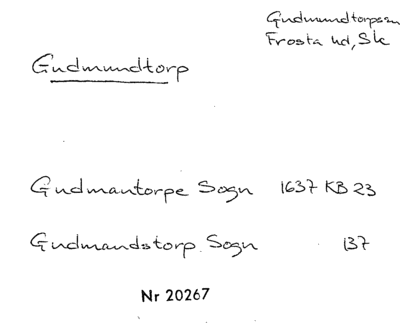 Gudmundtorps sn
Frosta hd, Sk
Gudmundtorp
Gudmantorpe Sogn 1637 KB 23
Gudmandstorp Sogn 137
Nr 20267